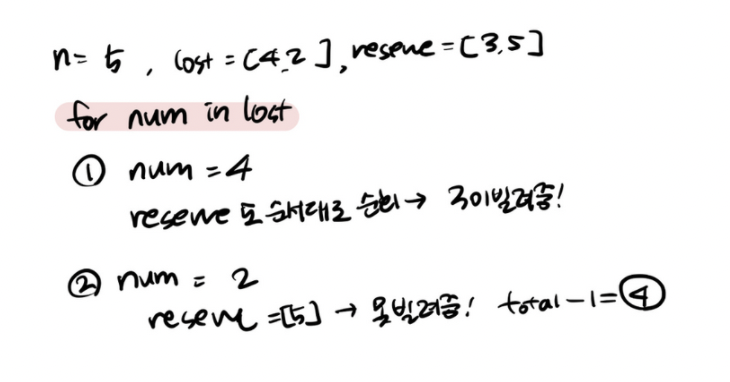 n= 5 , lost = [4,2], reserve = [3,5]
for num in lost
① num = 4
reserve도 순서대로 순회 → 3이 빌려줌!
② num = 2
reserve =[5] → 못빌려줌! total-1=④